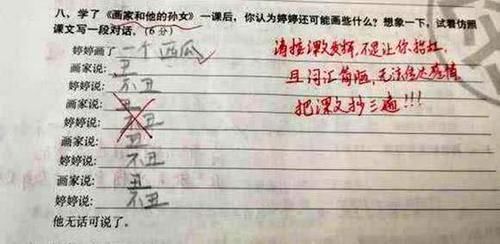 八、学了《画家和他的孙女》一课后，你认为婷婷还可能画些什么？想象一下，试着仿照
课文写一段对话。（6分）
婷婷画了一个西瓜
画家说：丑
婷婷说：不丑
画家说：丑
婷婷说：不丑
画家说：丑
婷婷说：不丑
画家说：丑
婷婷说：不丑
他无话可说了。
请按课文安排，不是让你抬杠
且词汇简陋，无法传达感情
把课文抄三遍!!!